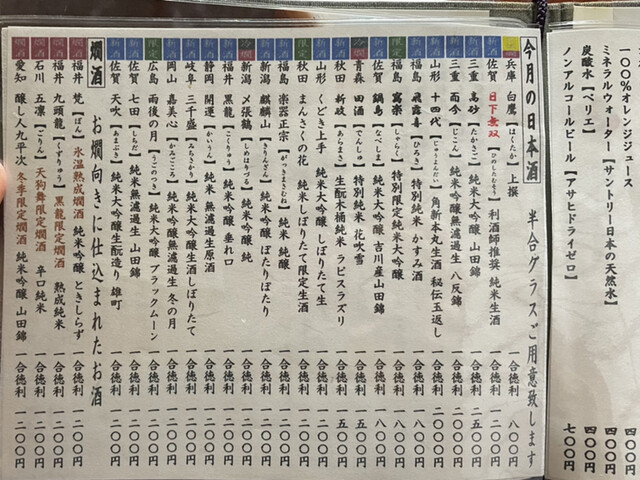 一〇〇％オレンジジュース 四〇〇円
ミネラルウォーター【サントリー日本の天然水】 四〇〇円
炭酸水【ペリエ】 四〇〇円
ノンアルコールビール【アサヒドライゼロ】 七〇〇円
今月の日本酒 半合グラスご用意致します
兵庫 白鷹【はくたか】上撰 一合徳利 八〇〇円
新酒 佐賀 日下無双【ひのしたむそう】利酒師推奨 純米生酒 一合徳利 一二〇〇円
新酒 三重 高砂【たかさご】純米大吟醸 山田錦 一合徳利 一五〇〇円
新酒 三重 而今【じこん】純米吟醸無濾過生 八反錦 一合徳利 二〇〇〇円
新酒 山形 十四代【じゅうよんだい】角新本丸生酒 秘伝玉返し 一合徳利 二〇〇〇円
福島 飛露喜【ひろき】特別純米 かすみ酒 一合徳利
限定 福島 寫楽【しゃらく】特別限定純米大吟醸 一合徳利 一八〇〇円
新酒 佐賀 鍋島【なべしま】純米大吟醸 吉川産山田錦 一合徳利 一八〇〇円
青森 田酒【でんしゅ】特別純米 花吹雪 一合徳利 一五〇〇円
新酒 秋田 新政【あらまさ】生酛木桶純米 ラピスラズリ 一合徳利 一五〇〇円
新酒 山形 くどき上手 純米大吟醸 しぼりたて生 一合徳利 一二〇〇円
限定 秋田 まんさくの花 純米しぼりたて限定生酒 一合徳利 一二〇〇円
福島 楽器正宗【がっきまさむね】純米 純醸 一合徳利 一〇〇〇円
新酒 新潟 麒麟山【きりんざん】純米吟醸 ぽたりぽたり 一合徳利 一二〇〇円
新潟 〆張鶴【しめはりづる】純米吟醸 純 一合徳利 一二〇〇円
新酒 福井 黒龍【こくりゅう】純米吟醸 垂れ口 一合徳利 一二〇〇円
新酒 静岡 開運【かいうん】純米 無濾過生原酒 一合徳利 一二〇〇円
新酒 岐阜 三千盛【みちさかり】純米大吟醸生酒しぼりたて 一合徳利 一二〇〇円
新酒 岡山 嘉美心【かみごころ】純米吟醸無濾過生 冬の月 一合徳利 一二〇〇円
限定 広島 雨後の月【うごのつき】純米大吟醸 ブラックムーン 一合徳利 一二〇〇円
新酒 佐賀 七田【しちだ】純米無濾過生 山田錦 一合徳利 一二〇〇円
新酒 佐賀 天吹【あまぶき】純米大吟醸生酛造り 雄町 一合徳利 一二〇〇円
燗酒 お燗向きに仕込まれたお酒
燗酒 福井 梵【ぼん】氷温熟成燗酒 純米吟醸 ときしらず 一合徳利 一二〇〇円
燗酒 福井 九頭龍【くずりゅう】黒龍限定燗酒 熟成純米 一合徳利 一二〇〇円
燗酒 石川 五凛【ごりん】天狗舞限定燗酒 辛口純米 一合徳利 一二〇〇円
燗酒 愛知 醸し人九平次 冬季限定燗酒 純米吟醸 山田錦 一合徳利 一二〇〇円